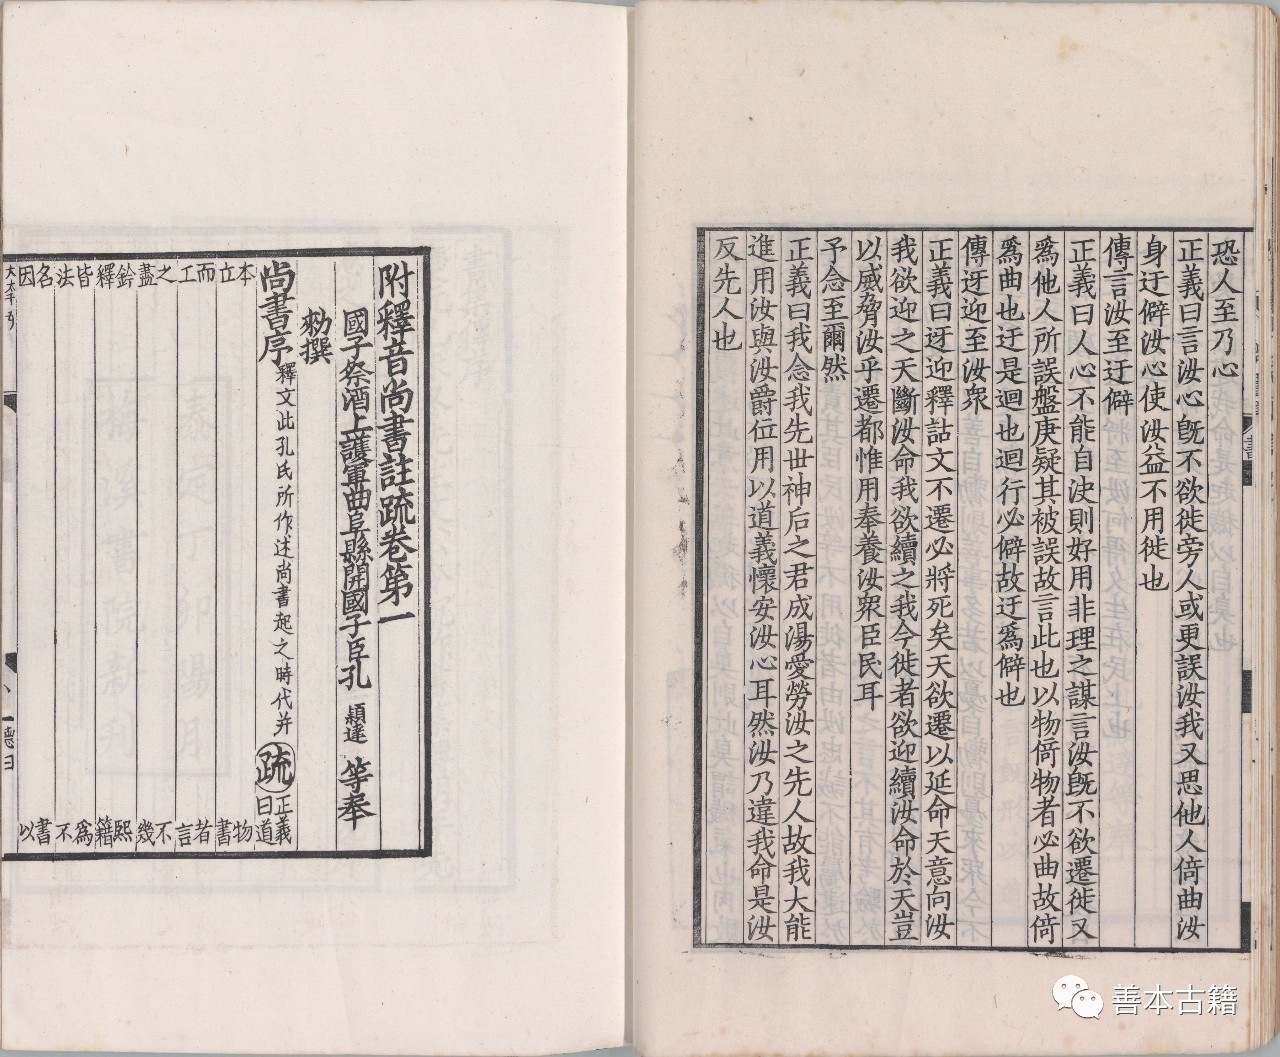 恐人至乃心
正義曰言汝心旣不欲徙旁人或更誤汝我又思他人倚曲汝
身迂僻汝心使汝益不用徙也
傳言汝至迂僻
正義曰人心不能自决則好用非理之謀言汝旣不欲遷徙又
爲他人所誤盤庚疑其被誤故言此也以物倚物者必曲故倚
爲曲也迂是迴也迴行必僻故迂爲僻也
傳迓迎至汝衆
正義曰迓迎釋詁文不遷必將死矣天欲遷以延命天意向汝
我欲迎之天斷汝命我欲續之我今徙者欲迎續汝命於天豈
以威脅汝乎遷都惟用奉養汝衆臣民耳
予念至爾然
正義曰我念我先世神后之君成湯愛勞汝之先人故我大能
進用汝與汝爵位用以道義懷安汝心耳然汝乃違我命是汝
反先人也
附釋音尚書註疏卷第一
國子祭酒上護軍曲阜縣開國子臣孔穎達等奉
勑撰
尚書序釋文此孔氏所作述尚書起之時代并
疏正義曰道
本 物
立 書
而 者
工 言
之 不
盡 幾
鈐 熙
釋 籍
皆 爲
法 不
名 書
因 以
善本古籍